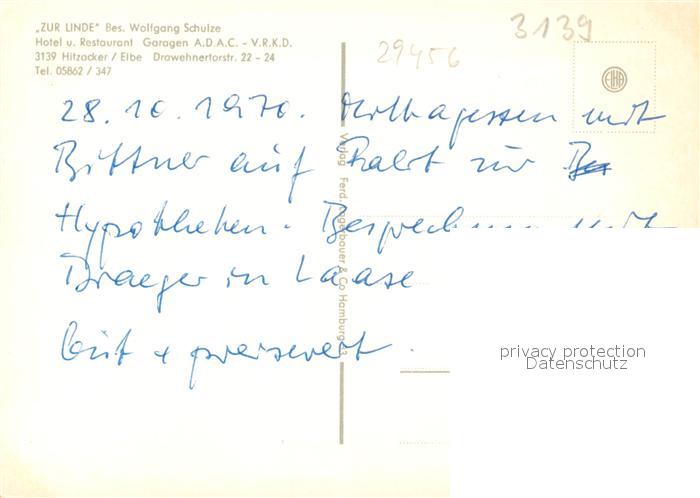 „ZUR LINDE" Bes. Wolfgang Schulze
Hotel u. Restaurant Garagen A.D.A.C. - V.R.K.D.
3139 Hitzacker / Elbe Drawehnertorstr. 22 - 24
Tel. 05862 / 347
3139
29456
28.10.1970. Mittagessen mit
Bittner auf Fahrt zur
Hypotheken-Besprechung mit
Draeger in Laase
Gut + preiswert.
Verlag Ferd. Lagerbauer & Co Hamburg 13
privacy protection
Datenschutz